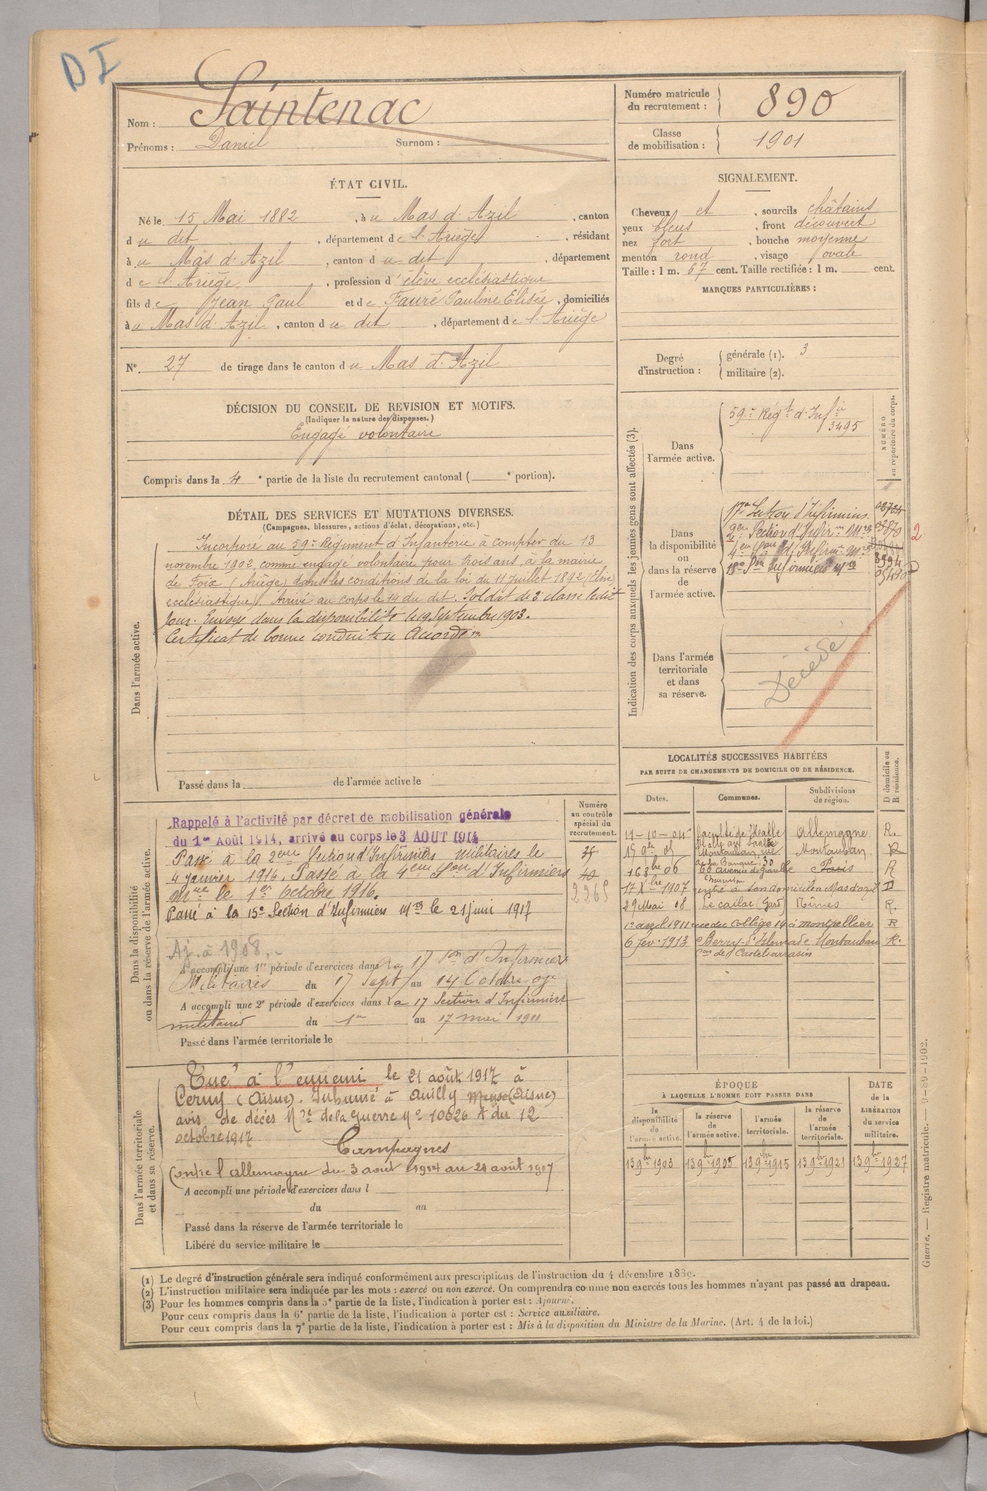 DI
Nom : Saintenac
Prénoms : Daniel Surnom :
Numéro matricule du recrutement : 890
Classe de mobilisation : 1901
ÉTAT CIVIL.
Né le 15 Mai 1882, à u Mas d'Azil, canton
d u dit, département de l'Ariège, résidant
à u Mas d'Azil, canton d u dit, département
d e l'Ariège, profession d'élève ecclésiastique
fils d e Jean Paul et d e Fauré Pauline Elisée, domiciliés
à u Mas d'Azil, canton d u dit, département d e l'Ariège
N° 27 de tirage dans le canton d u Mas d'Azil
SIGNALEMENT.
Cheveux et, sourcils châtains
yeux bleus, front découvert
nez fort, bouche moyenne
menton rond, visage ovale
Taille : 1 m. 67 cent. Taille rectifiée : 1 m. cent.
MARQUES PARTICULIÈRES :
Degré d'instruction : générale (1). 3
militaire (2).
DÉCISION DU CONSEIL DE REVISION ET MOTIFS.
(Indiquer la nature des dispenses.)
Engagé volontaire
Compris dans la 4e partie de la liste du recrutement cantonal ( e portion).
DÉTAIL DES SERVICES ET MUTATIONS DIVERSES.
(Campagnes, blessures, actions d'éclat, décorations, etc.)
Dans l'armée active.
Incorporé au 59e Régiment d'Infanterie à compter du 13
novembre 1902, comme engagé volontaire pour trois ans, à la mairie
de Foix (Ariège) dans les conditions de la loi du 11 juillet 1892 (Elève
ecclésiastique). Arrivé au corps le 14 du dit. Soldat de 2e classe le dit
jour. Envoyé dans la disponibilité le 19 Septembre 1903.
Certificat de bonne conduite Accordé
Passé dans la de l'armée active le
Indication des corps auxquels les jeunes gens sont affectés (3).
NUMÉRO au répertoire du corps.
Dans l'armée active.
59e Régt d'Infie
3495
Dans la disponibilité ou dans la réserve de l'armée active.
17e Section d'Infirmiers
2e Section d'Infirm. Mres
4e Son d'Infirm. Mres
15e Son Infirmiers Mres
2
Dans l'armée territoriale et dans sa réserve.
Décédé
Dans la disponibilité ou dans la réserve de l'armée active.
Numéro au contrôle spécial du recrutement.
Rappelé à l'activité par décret de mobilisation générale
du 1er Août 1914, arrivé au corps le 3 AOUT 1914
Passé à la 2eme Section d'Infirmiers militaires le
4 janvier 1916. Passé à la 4eme Son d'Infirmiers
Mres le 1er Octobre 1916.
Passé à la 15e Section d'Infirmiers Mres le 21 juin 1917
2265
Aj. à 1908.
A accompli une 1re période d'exercices dans la 17 Son d'Infirmiers
Militaires du 17 Sept au 14 Octobre 09
A accompli une 2e période d'exercices dans la 17 Section d'Infirmiers
militaires du 1er au 17 mai 1911
Passé dans l'armée territoriale le
LOCALITÉS SUCCESSIVES HABITÉES
PAR SUITE DE CHANGEMENTS DE DOMICILE OU DE RÉSIDENCE.
Dates. Communes. Subdivisions de région. D domicile ou R résidence.
11-10-04 faculté de Halle Allemagne R.
Montauban, rue Montauban R
Paris R
17 Xbre 1907 rentre à son domicile au Mas d'Azil D
29 Mai 08 Le Cailar (Gard) Nîmes R.
13 avril 1911 rue du Collège 14 à Montpellier R
6 fév 1913 Montauban R.
Dans l'armée territoriale et dans sa réserve.
Tué à l'ennemi le 21 août 1917 à
Cerny (Aisne). Inhumé à Œuilly Meuse (Aisne)
avis de décès Mre de la Guerre No 10626 du 12
octobre 1917
Campagnes
Contre l'Allemagne du 3 août 1914 au 21 août 1917
A accompli une période d'exercices dans l
du au
Passé dans la réserve de l'armée territoriale le
Libéré du service militaire le
ÉPOQUE
À LAQUELLE L'HOMME DOIT PASSER DANS
la disponibilité de l'armée active. la réserve de l'armée active. l'armée territoriale. la réserve de l'armée territoriale. DATE de la LIBÉRATION du service militaire.
13 9bre 1903 13 9bre 1905 13 9bre 1915 13 9bre 1921 13 9bre 1927
(1) Le degré d'instruction générale sera indiqué conformément aux prescriptions de l'instruction du 4 décembre 1889.
(2) L'instruction militaire sera indiquée par les mots : exercé ou non exercé. On comprendra comme non exercés tous les hommes n'ayant pas passé au drapeau.
(3) Pour les hommes compris dans la 5e partie de la liste, l'indication à porter est : Ajourné.
Pour ceux compris dans la 6e partie de la liste, l'indication à porter est : Service auxiliaire.
Pour ceux compris dans la 7e partie de la liste, l'indication à porter est : Mis à la disposition du Ministre de la Marine. (Art. 4 de la loi.)